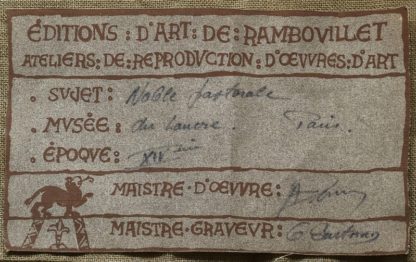 ÉDITIONS : D'ART : DE : RAMBOVILLET
ATELIERS : DE : REPRODUCTION : D'ŒUVRES : D'ART
. SUJET : Noble Pastorale
. MUSÉE : du Louvre. Paris.
. ÉPOQUE : XIV ème
MAISTRE · D'OEUVRE :
MAISTRE · GRAVEUR : G